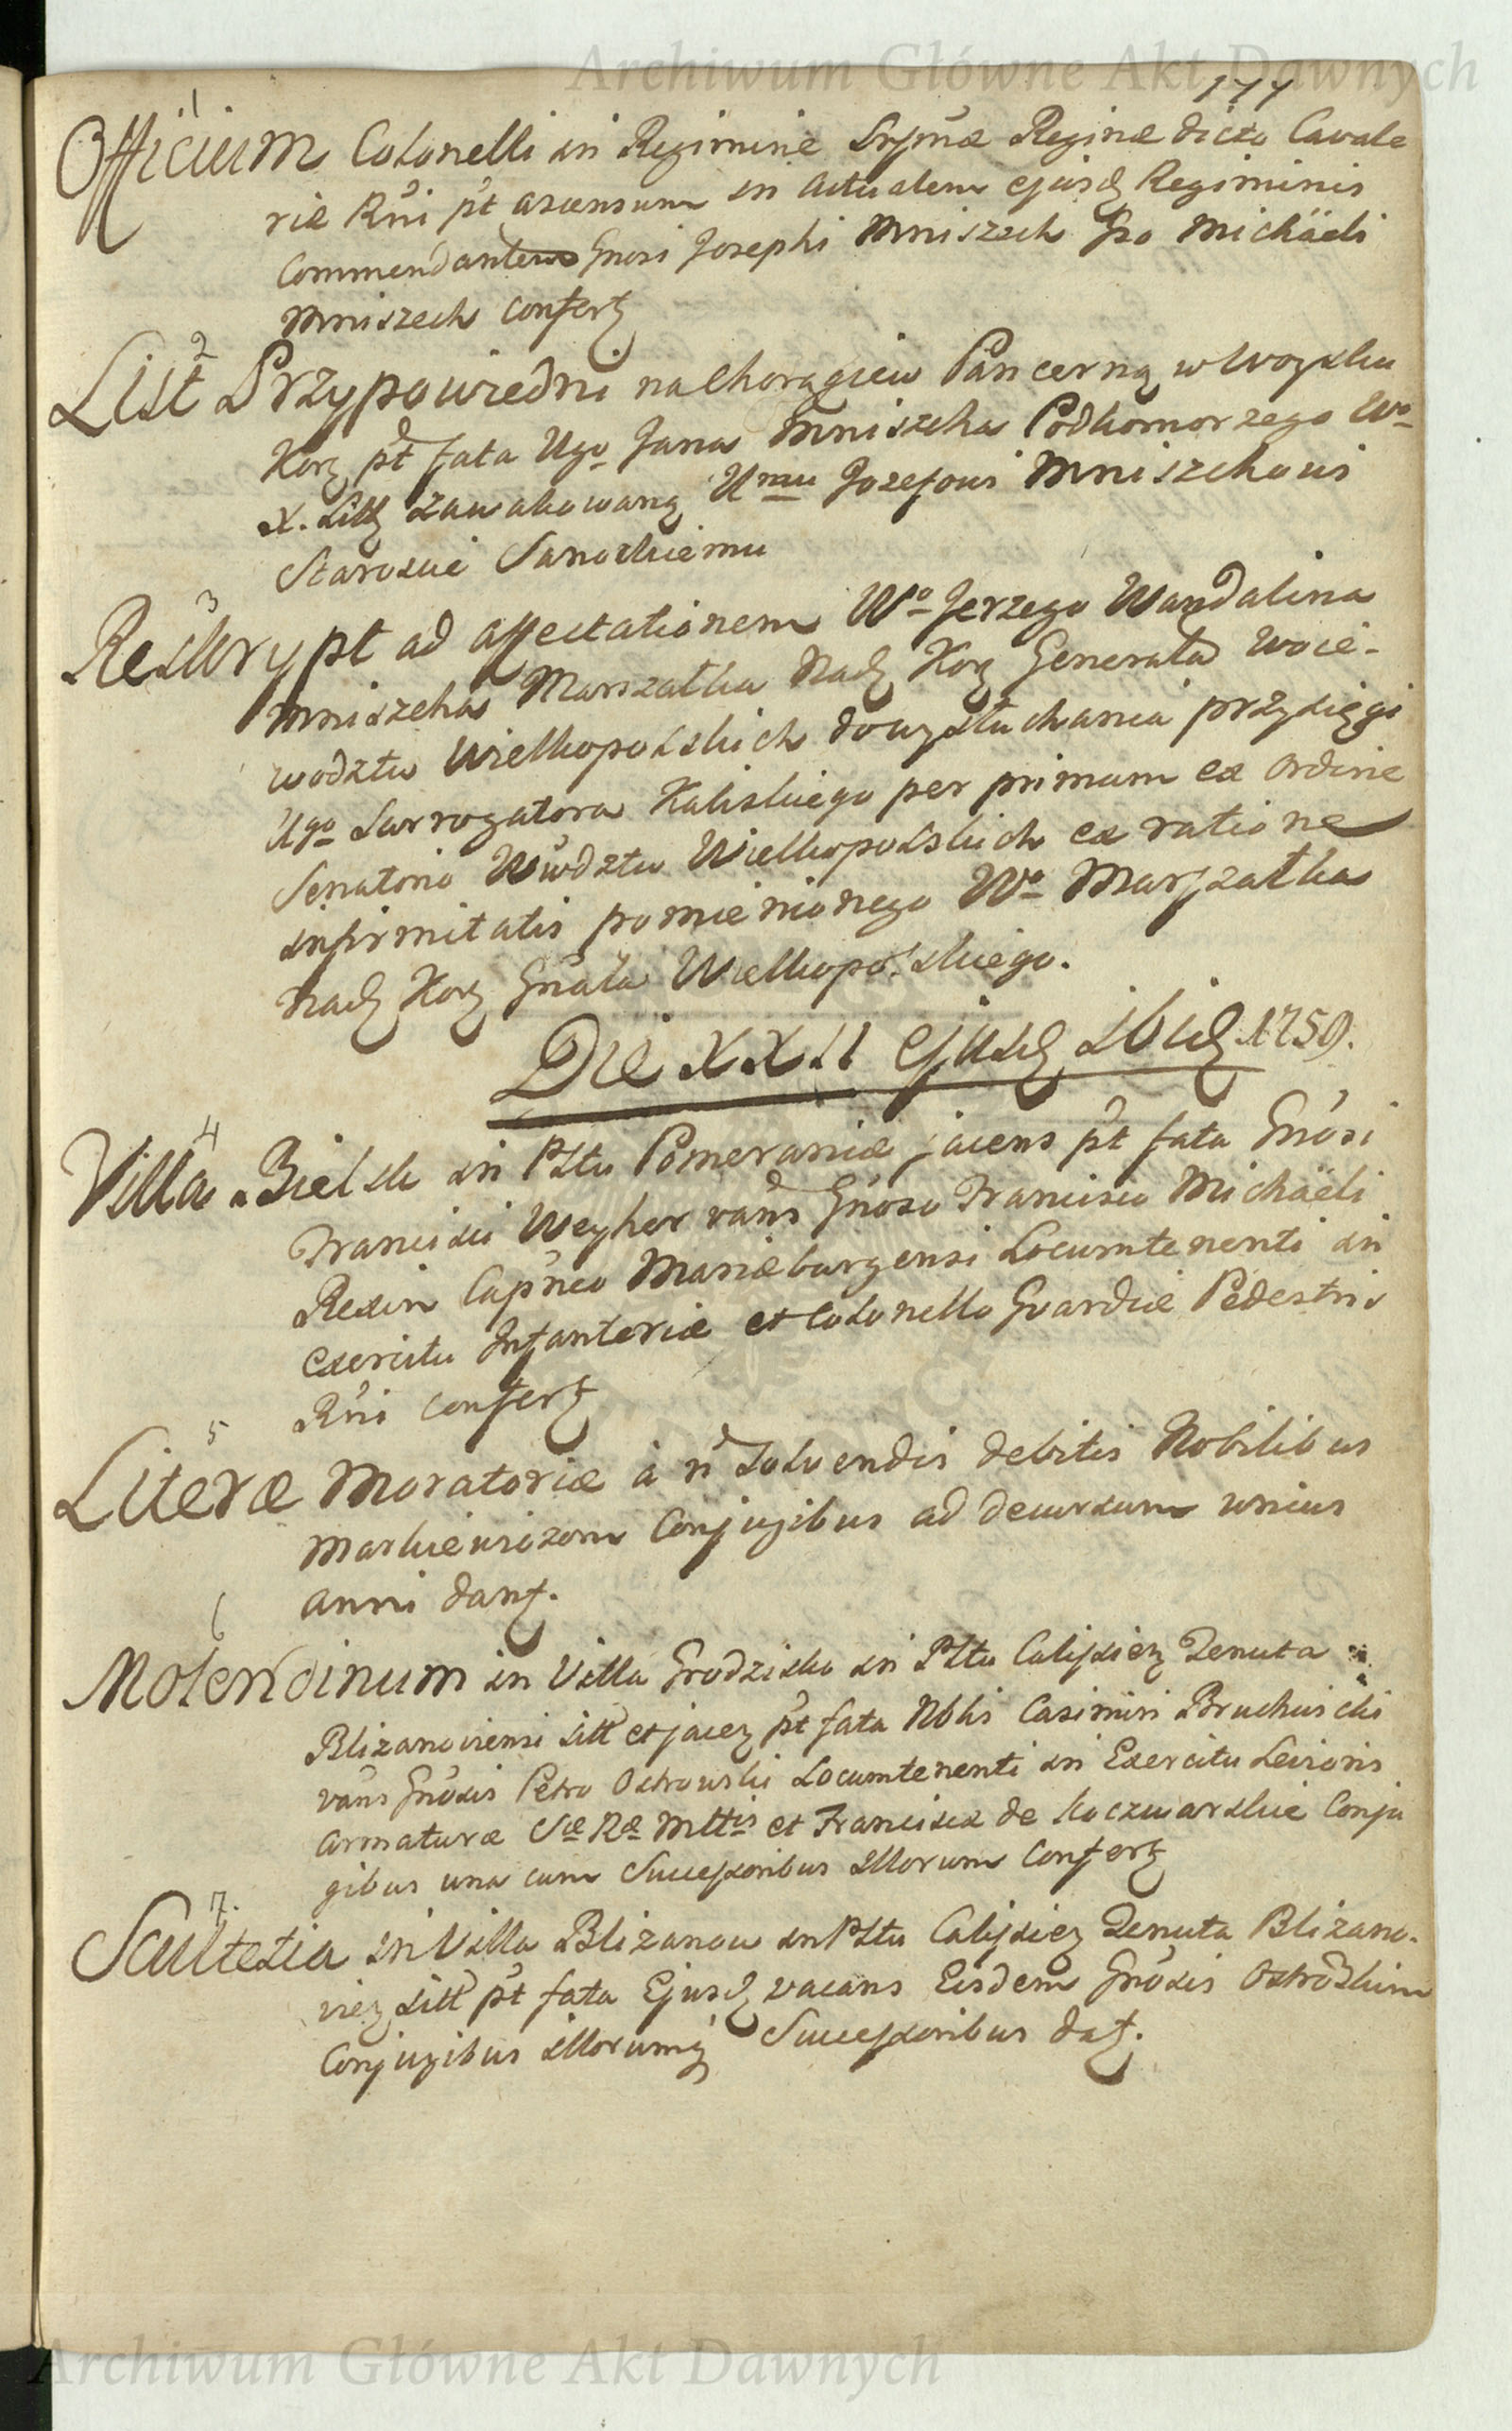 Archiwum Główne Akt Dawnych
177
1
Officium Colonelli in Regimine Srjmæ Reginæ dicto Cavale
riæ Rni pt ascensum in actualem ejusd Regiminis
Commendantem Gnosi Josephi Mniszech Gso Michäeli
Mniszech Confert
2
List Przypowiedni na Chorągiew Pancerną w Woysku
Kor pt fata Ugo Jana Mniszcha Podkomorzego Wo
X. Litt zawakowaną Umu Jozefowi Mniszchowi
Staroscie Sanockiemu
3
Reskrypt ad affectationem Wo Jerzego Wandalina
Mniszcha Marszałka Nad Kor Generała Woie-
wodztw Wielkopolskich do wysłuchania przysięgi
Ugo Surrogatora Kaliskiego per primum ex Ordine
Senatorio Wwdztw Wielkopolskich ex ratione
infirmitatis pomienionego Wo Marszałka
Nad Kor Gnała Wielkopolskiego.
Die XXII ejusd ibid 1759.
4
Villa Bielsk in Pttu Pomeraniæ jacens pt fata Gnosi
Francisci Weyher vans Gnoso Francisco Michäeli
Rexin Capneo Mariæburgensi Locumtenenti in
Exercitu Infanteriæ et Colonello Guardiæ Pedestris
Rni Confert
5
Literæ Moratoriæ à n solvendis debitis Nobilibus
Markiewiczom Conjugibus ad decursum unius
anni dant.
6
Molendinum in Villa Grodzisko in Pttu Calissien Tenuta
Blizanoviensi sitt et jacen pt fata Nblis Casimiri Bruchwicki
vans Gnosis Petro Ostrowski Locumtenenti in Exercitu Levioris
Armaturæ Sæ Ræ Mttis et Francisca de Koczwarskie Conju
gibus una cum Successoribus Illorum Confert
7.
Scultetia in Villa Blizanow in Pttu Calissien Tenuta Blizano-
vien sitt pt fata Ejusd vacans Eisdem Gnosis Ostroskim
Conjugibus illorumq Successoribus dat.
Archiwum Główne Akt Dawnych